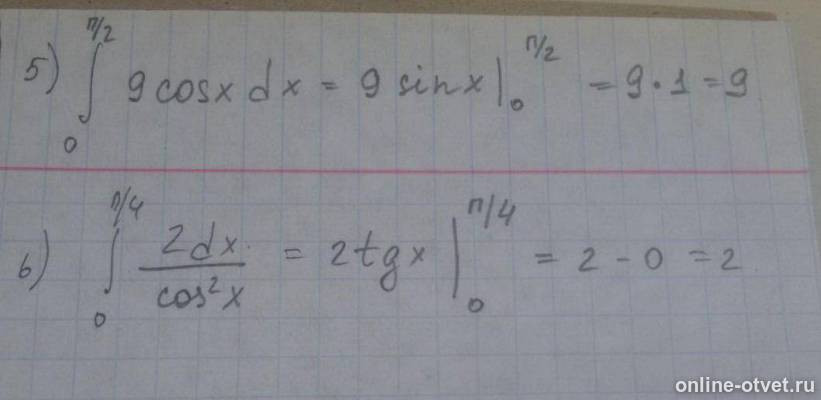 5) ∫₀^{π/2} 9 cosx dx = 9 sinx |₀^{π/2} = 9 · 1 = 9
6) ∫₀^{π/4} 2dx / cos²x = 2tgx |₀^{π/4} = 2 - 0 = 2
online-otvet.ru